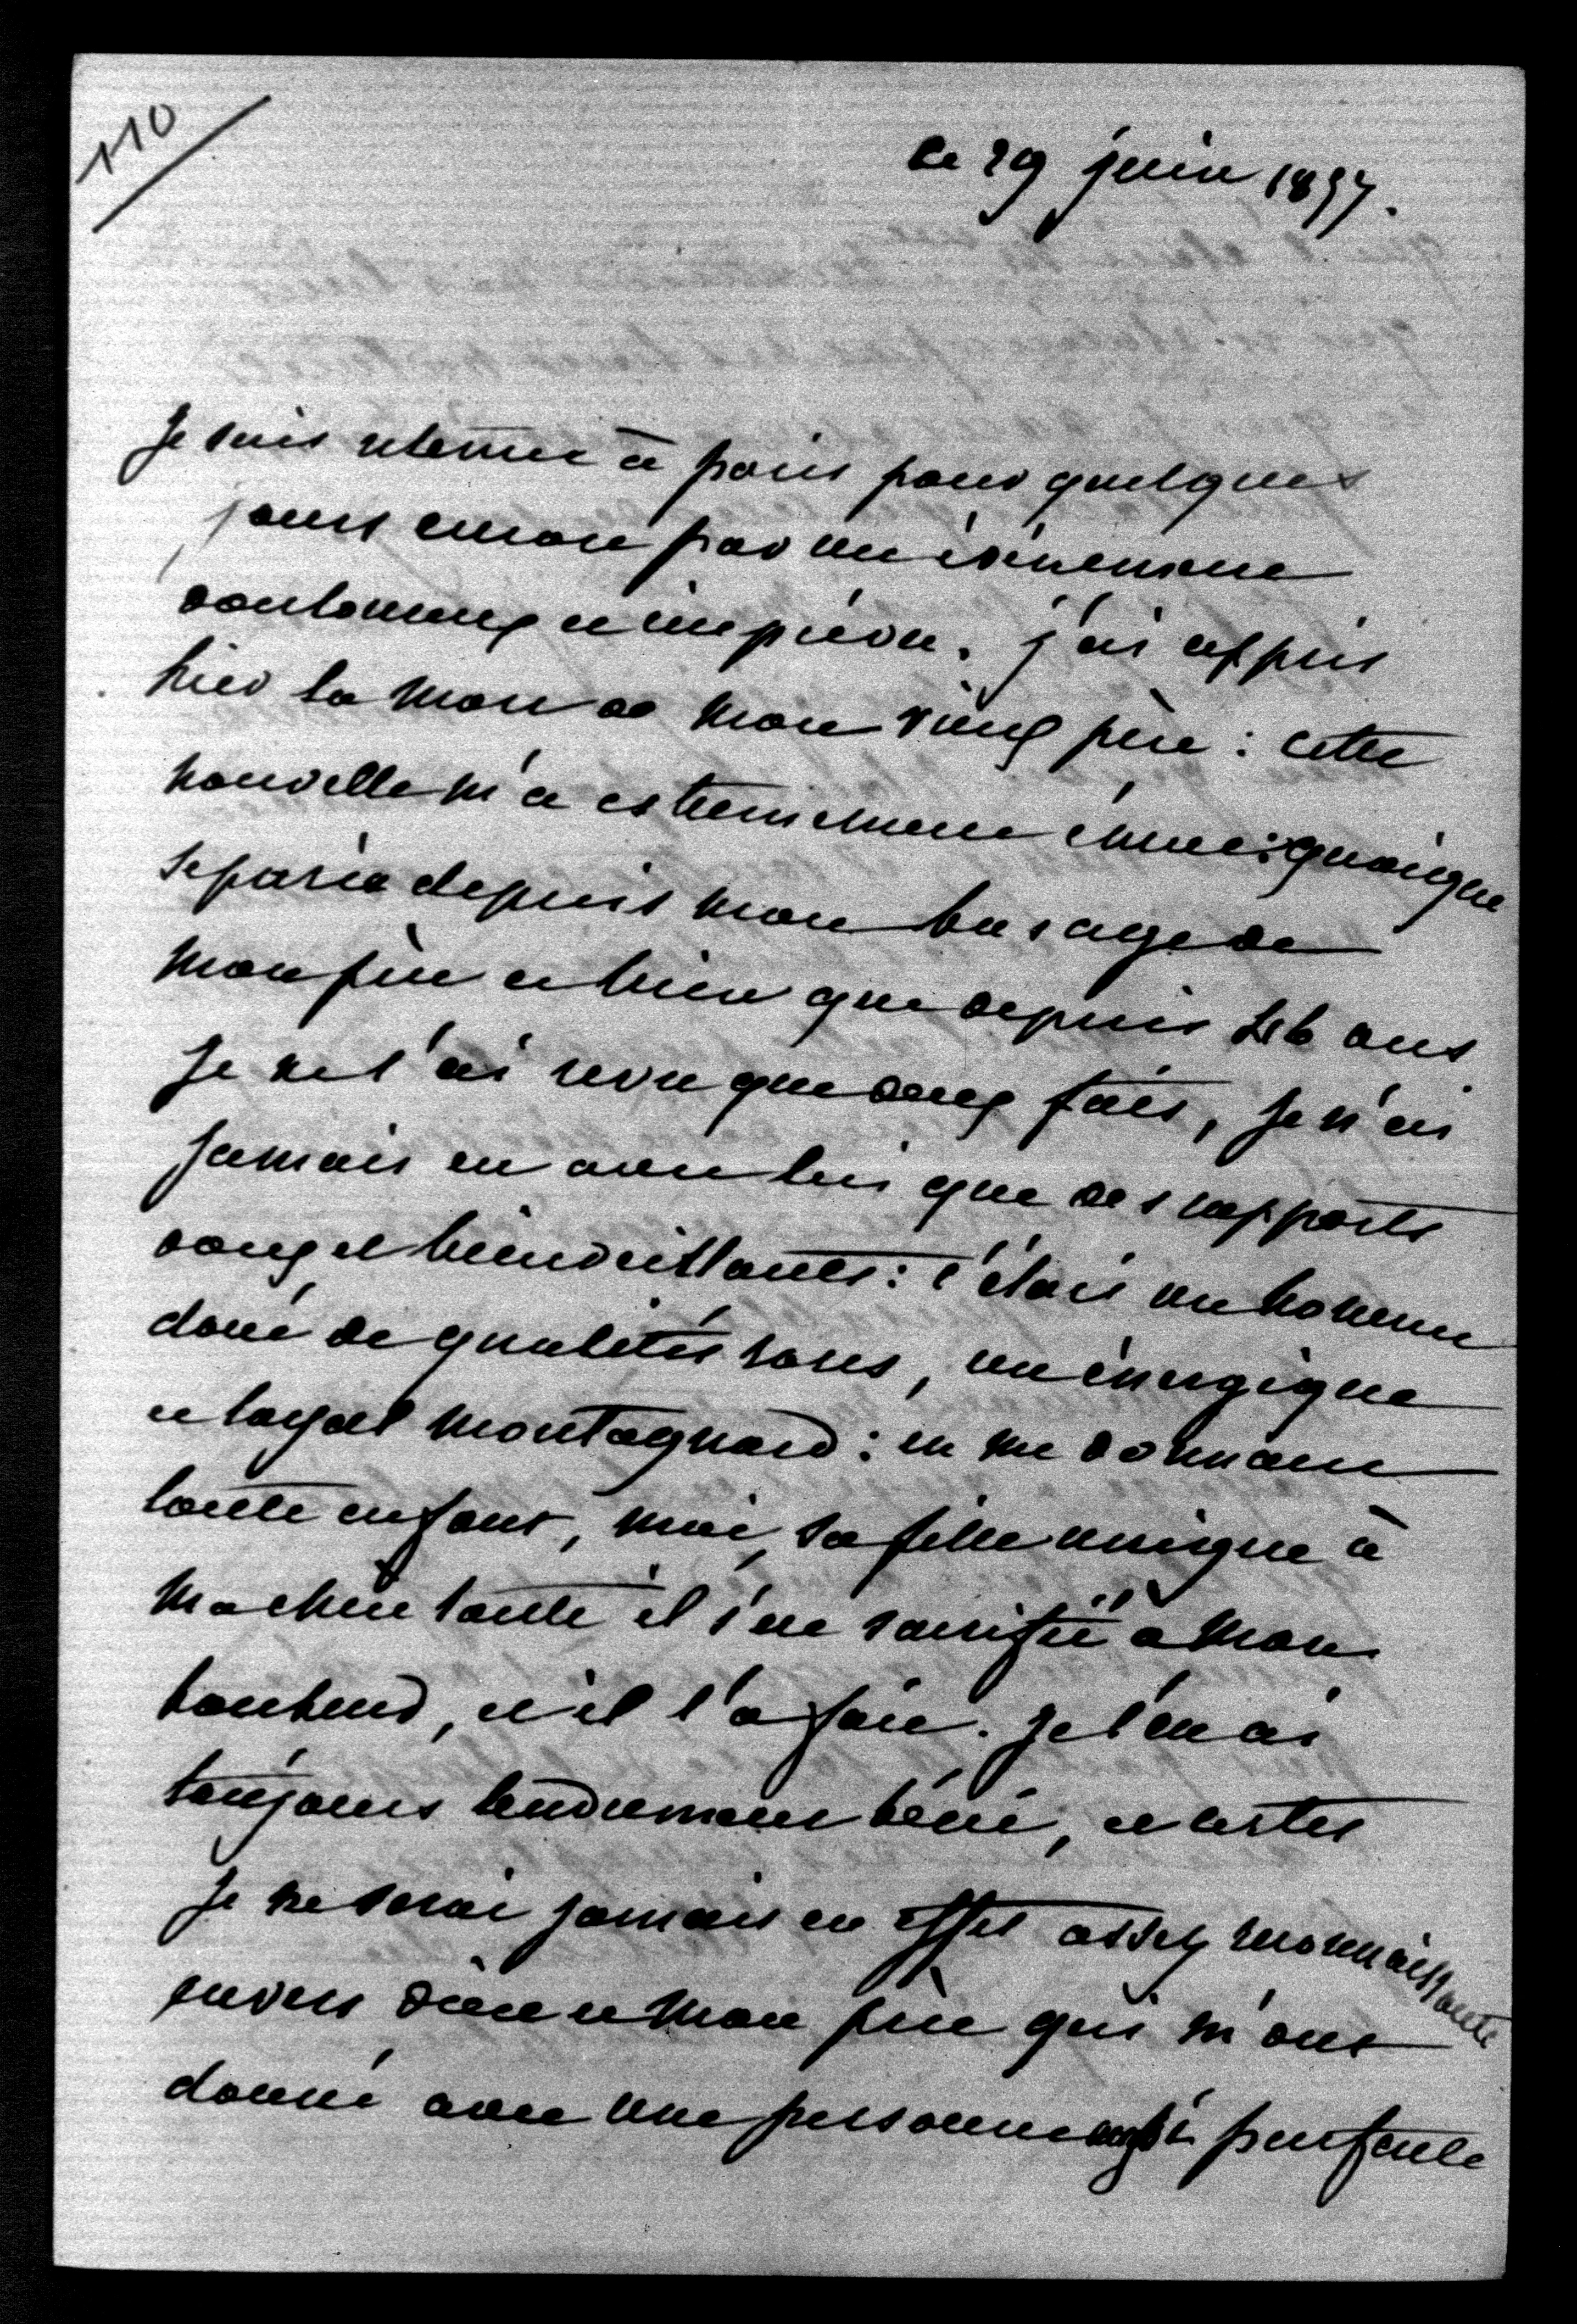 110
ce 29 juin 1897.
Je suis retenue à paris pour quelques
jours encore par un évènement
douloureux et imprévu. j'ai appris
hier la mort de mon vieux père : cette
nouvelle m'a extrêmement émue : quoique
séparée depuis mon bas age de
mon père et bien que depuis ans
Je ne l'ai revu que deux fois, je n'ai
Jamais eu avec lui que des rapports
doux et bienveillants : c'était un homme
doué de qualités rares, un énergique
et loyal montagnard : en me donnant
toute enfant, moi, sa fille unique à
ma chère tante il s'est sacrifié à mon
bonheur, et il l'a fait. Je l'en ai
toujours tendrement béni, et certes
Je ne serai jamais en effet assez reconnaissante
envers dieu et mon père qui m'ont
donné avec une personne aussi parfaite